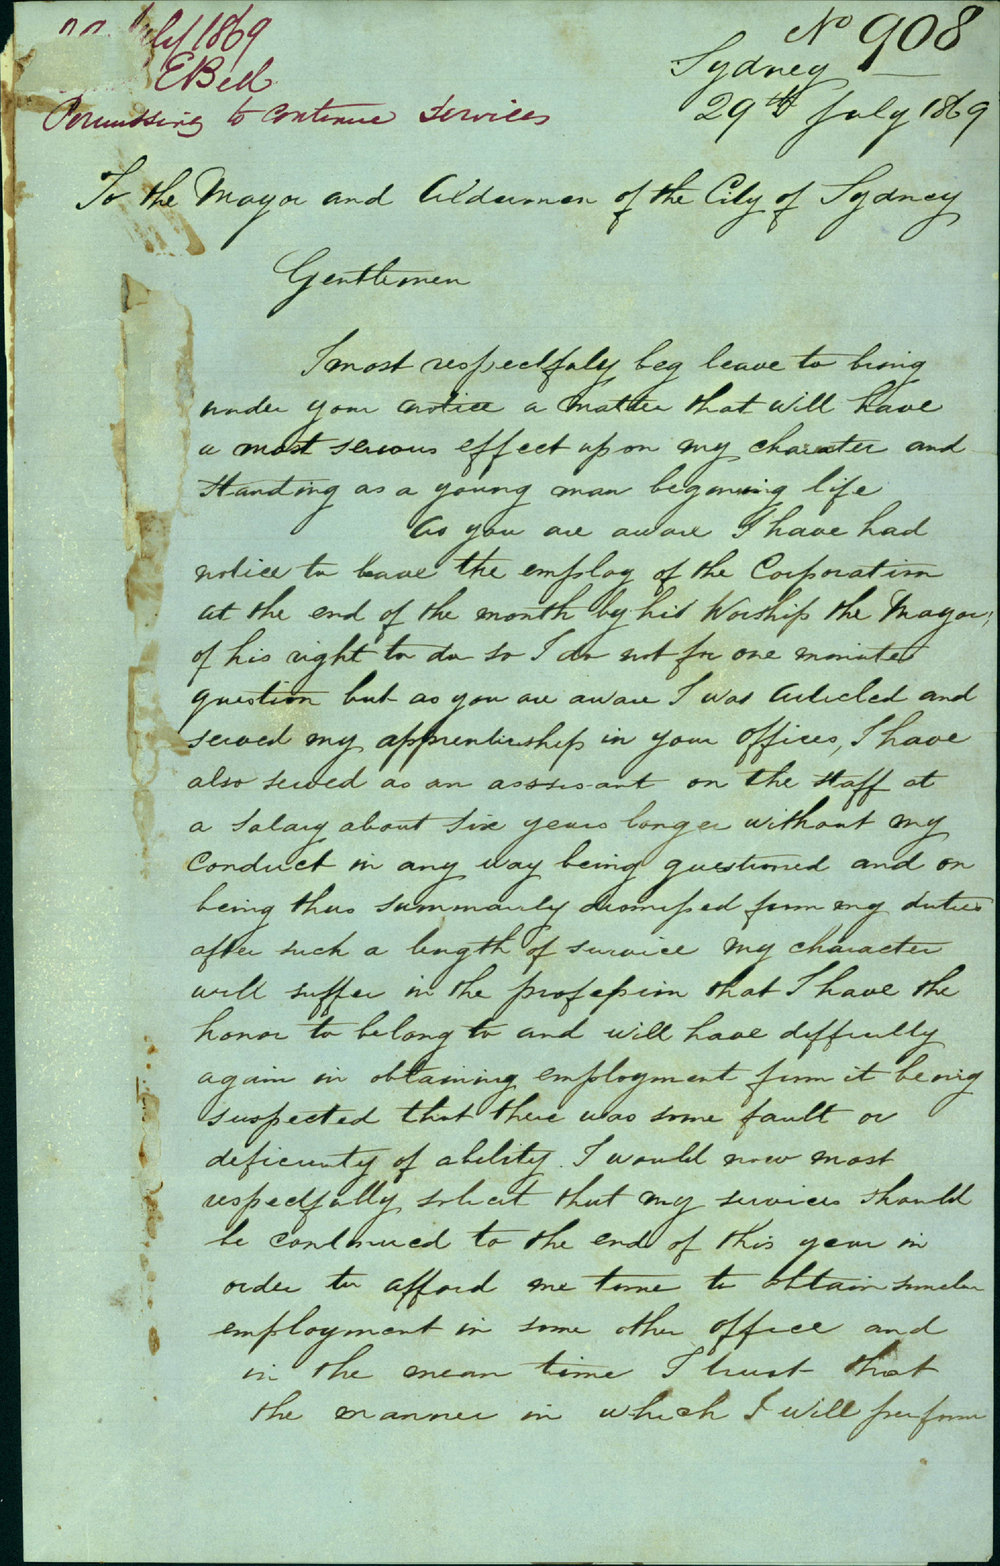 July 1869
E Bell
Permission to continue Services
No 908
Sydney
29th July 1869
To the Mayor and Aldermen of the City of Sydney
Gentlemen
I most respectfuly beg leave to bring
under your notice a matter that will have
a most serious effect upon my charater and
standing as a young man begining life
As you are aware I have had
notice to leave the employ of the Corporation
at the end of the month by his Worship the Mayor;
of his right to do so I do not for one minute
question but as you are aware I was Articled and
served my apprenticeship in your offices, I have
also served as an assisant on the staff at
a salary about six years longer without my
conduct in any way being questioned and on
being thus summarily dismissed from my duties
after such a length of service my character
will suffer in the profession that I have the
honor to belong to and will have difficulty
again in obtaining employment from it being
suspected that there was some fault or
deficienty of ability. I would now most
respectfully solicit that my services should
be continued to the end of this year in
order to afford me time to obtain similar
employment in some other office and
in the mean time I trust that
the manner in which I will preform